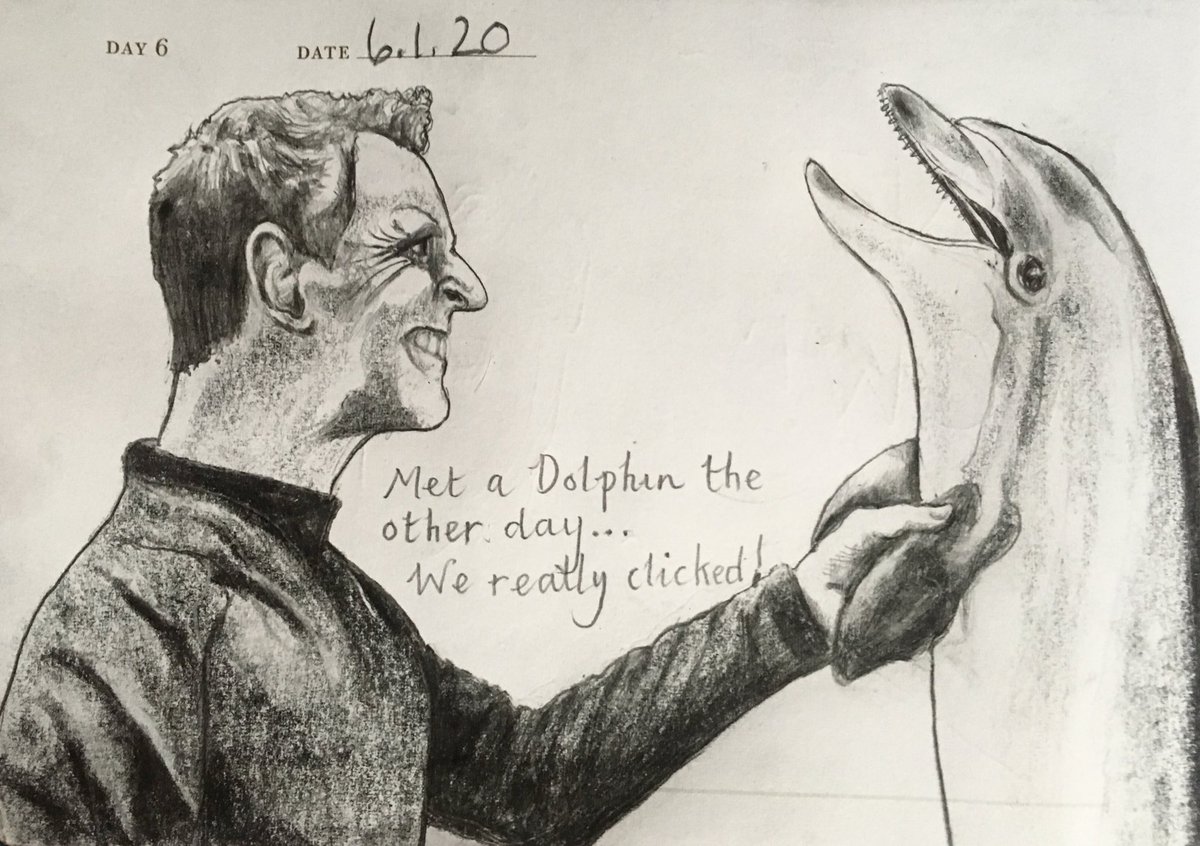 DAY 6
DATE 6.1.20
Met a Dolphin the
other day...
We really clicked!